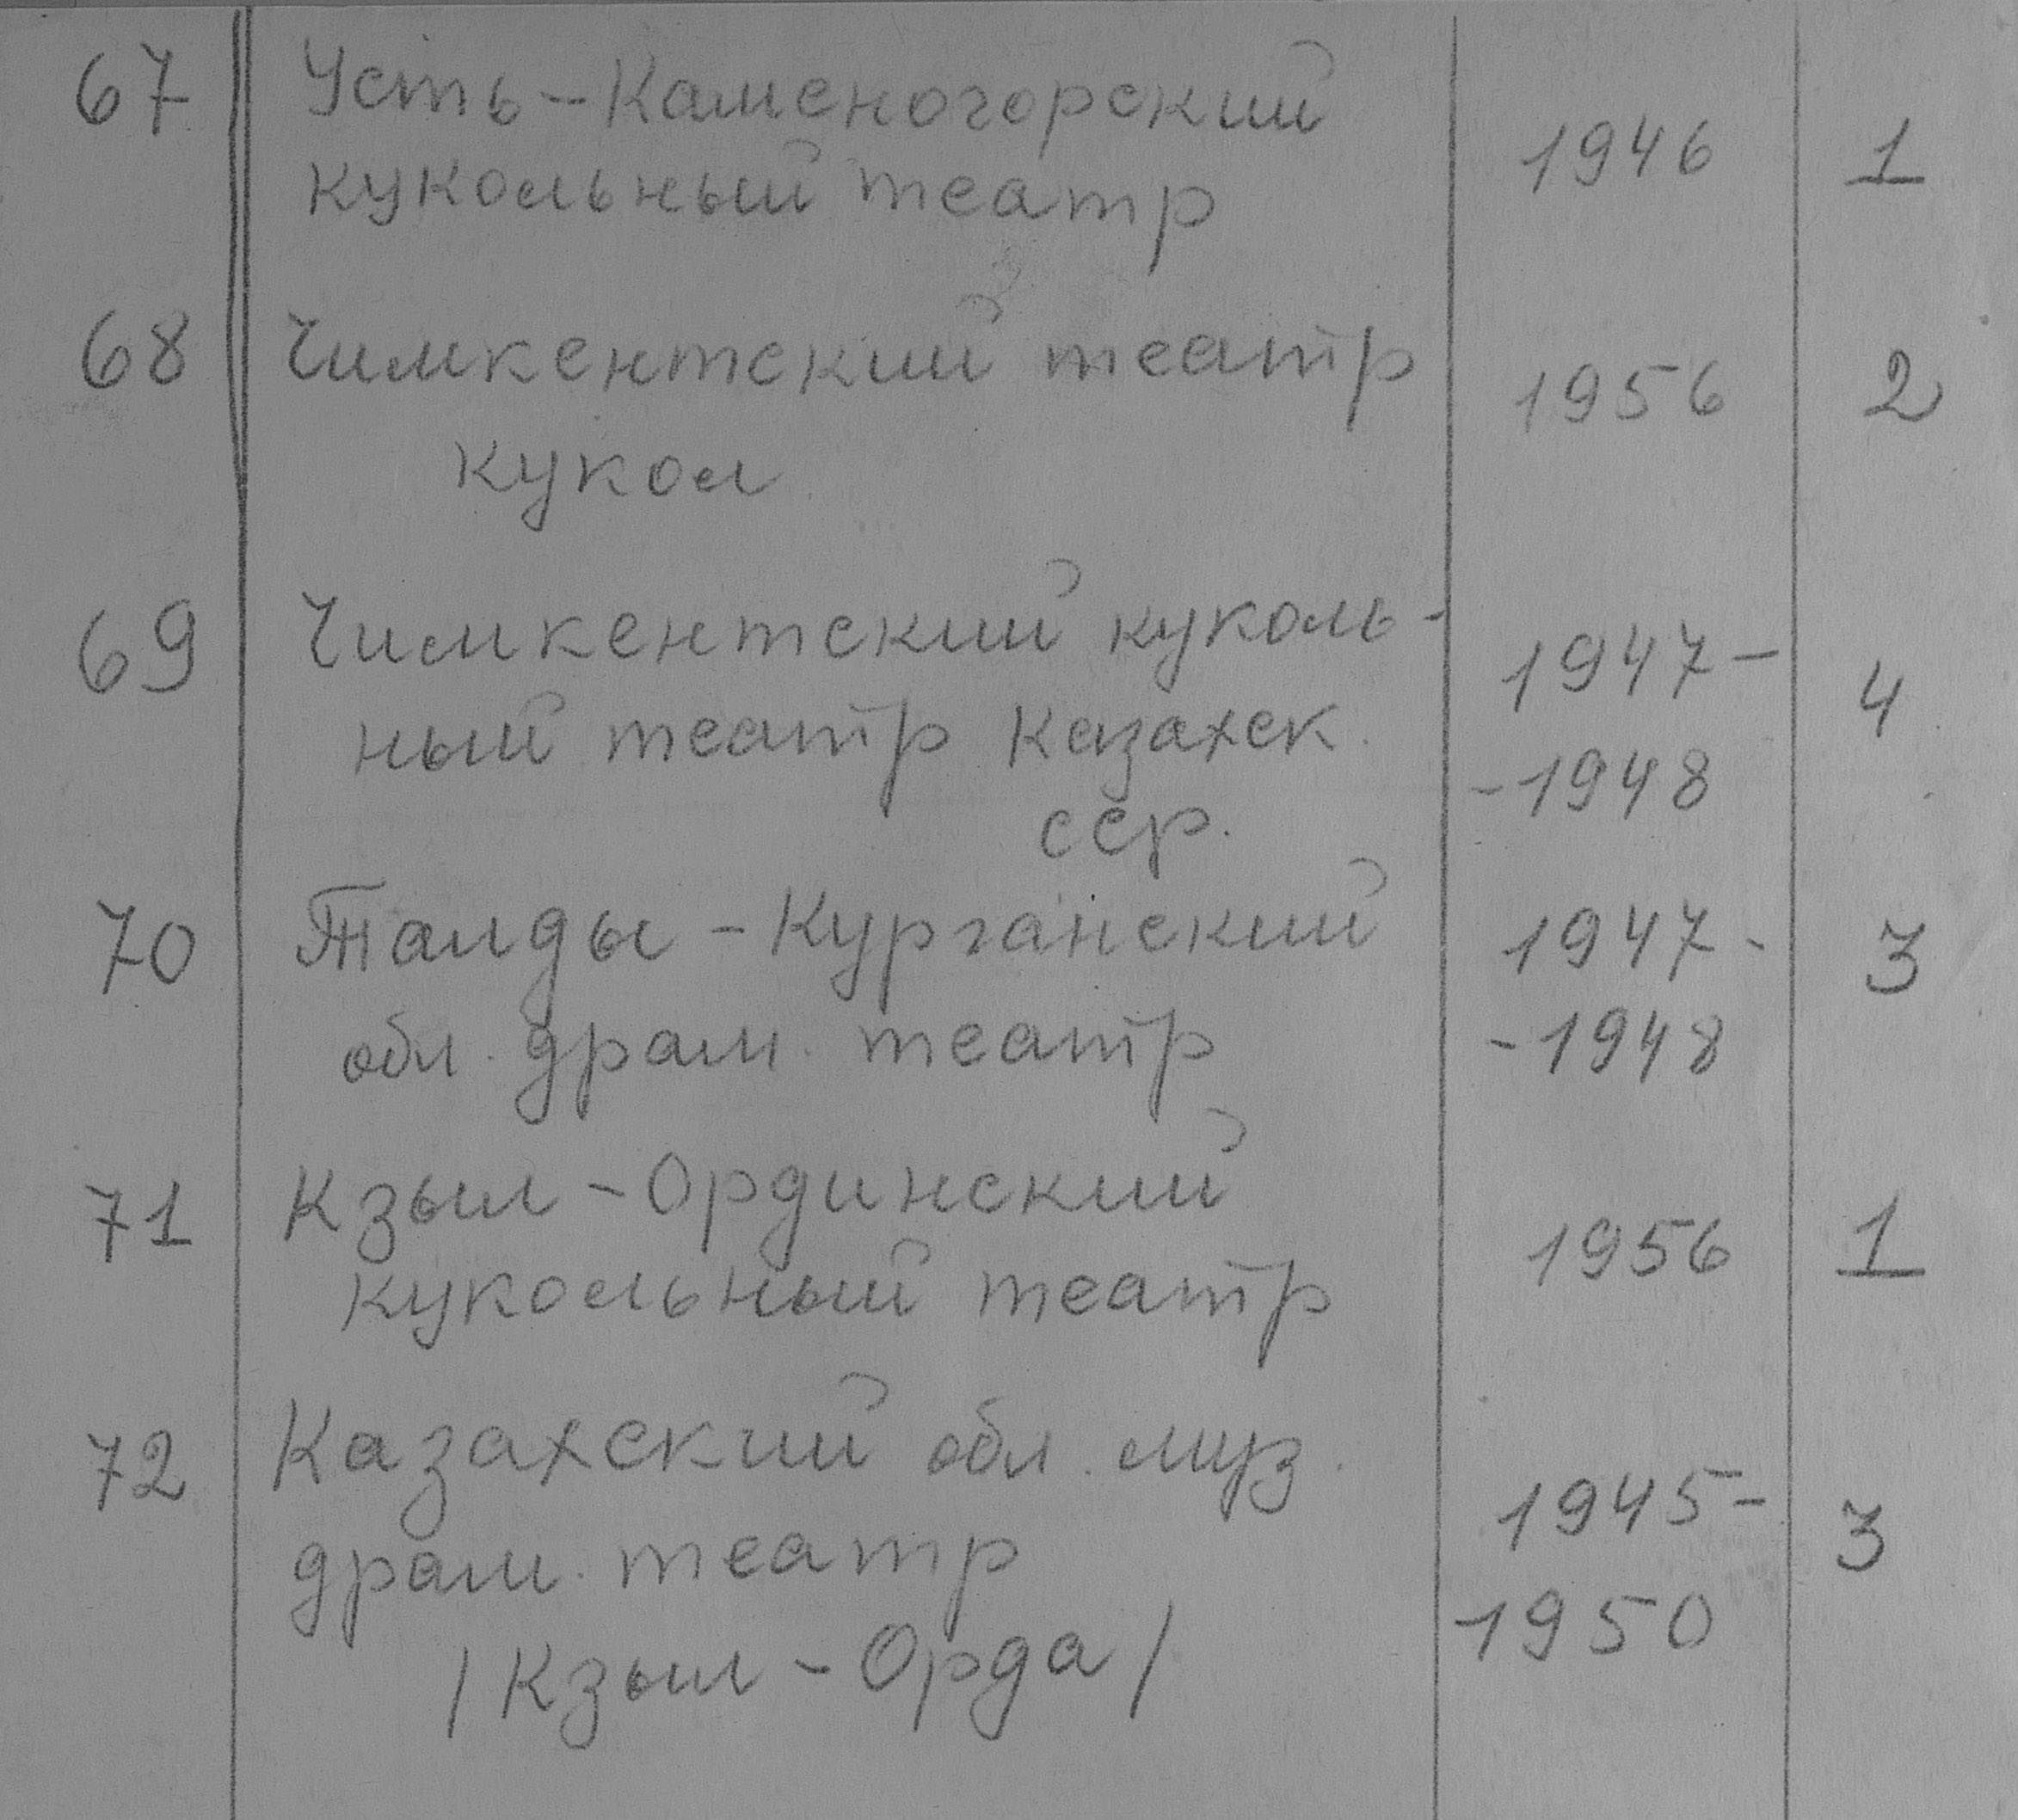 67 Усть-Каменогорский
кукольный театр 1946 1
68 Чимкентский театр
кукол 1956 2
69 Чимкентский куколь-
ный театр Казахск.
сср. 1947-
-1948 4
70 Талды-Курганский
обл. драм. театр 1947-
-1948 3
71 Кзыл-Ординский
кукольный театр 1956 1
72 Казахский обл. муз.
драм. театр 1945-
1950 3
/Кзыл-Орда/